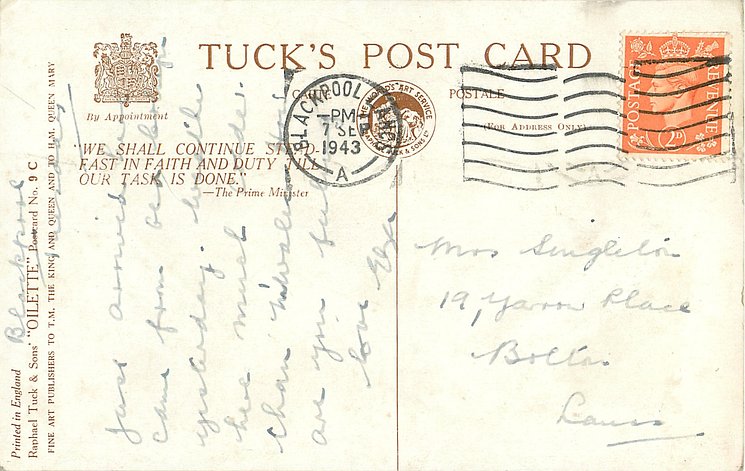 TUCK'S POST CARD
By Appointment
CARTE POSTALE
(For Address Only)
"WE SHALL CONTINUE STEADFAST IN FAITH AND DUTY TILL
OUR TASK IS DONE."
—The Prime Minister
BLACKPOOL LANCS
PM
7 SEP
1943
A
POSTAGE
REVENUE
2D
Mrs Singleton
19, Yarrow Place
Bolton
Lancs
Blackpool
Just arrived
came from
yesterday.
here much
than
are you full
love Elza
Printed in England
Raphael Tuck & Sons' "OILETTE" Postcard No. 9 C
FINE ART PUBLISHERS TO T.M. THE KING AND QUEEN AND TO H.M. QUEEN MARY